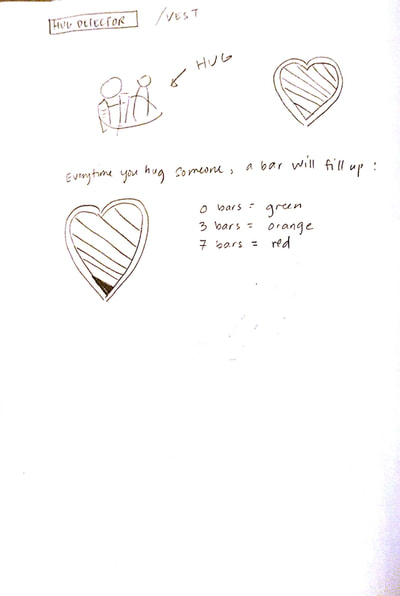 HUG DETECTOR /VEST
HUG
Everytime you hug someone, a bar will fill up:
0 bars = green
3 bars = orange
7 bars = red